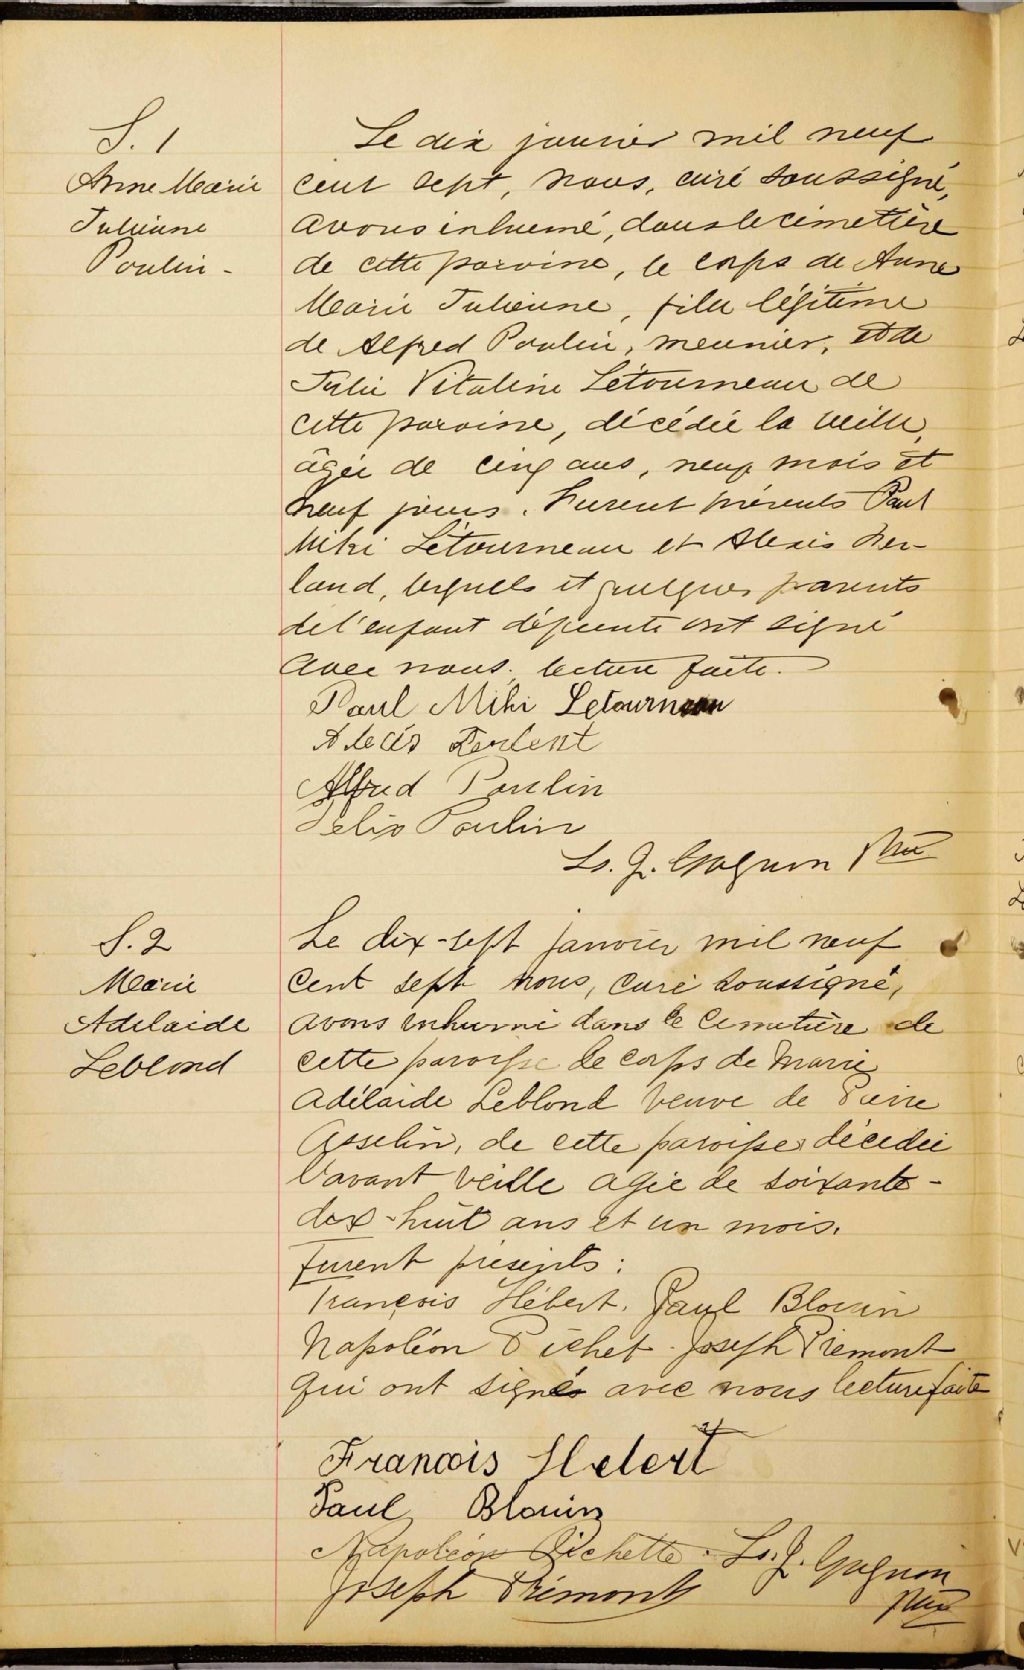 S. 1
Anne Marie
Julienne
Poulin -
Le dix janvier mil neuf
cent sept, nous, curé soussigné,
avons inhumé, dans le cimetière
de cette paroisse, le corps de Anne
Marie Julienne, fille légitime
de Alfred Poulin, meunier, et de
Julie Vitaline Létourneau de
cette paroisse, décédée la veille,
âgée de cinq ans, neuf mois et
neuf jours. Furent présents Paul
Miki Létourneau et Alexis Ter-
land, lesquels et quelques parents
de l'enfant défunte ont signé
avec nous, lecture faite.
Paul Miki Letourneau
Alfred Poulin
Felix Poulin
Ls. J. Gagnon Ptre
S. 2
Marie
Adelaide
Leblond
Le dix-sept janvier mil neuf
cent sept nous, curé soussigné,
avons inhumé dans le cimetière de
cette paroisse le corps de Marie
Adélaide Leblond veuve de Pierre
Asselin, de cette paroisse décédée
l'avant veille agée de soixante-
dix-huit ans et un mois.
Furent présents :
François Hébert. Paul Blouin
Napoléon Pichet. Joseph Prémont
qui ont signés avec nous lecture faite
François Hebert
Paul Blouin
Napoléon Pichette. Ls. J. Gagnon
Joseph Prémont Ptre